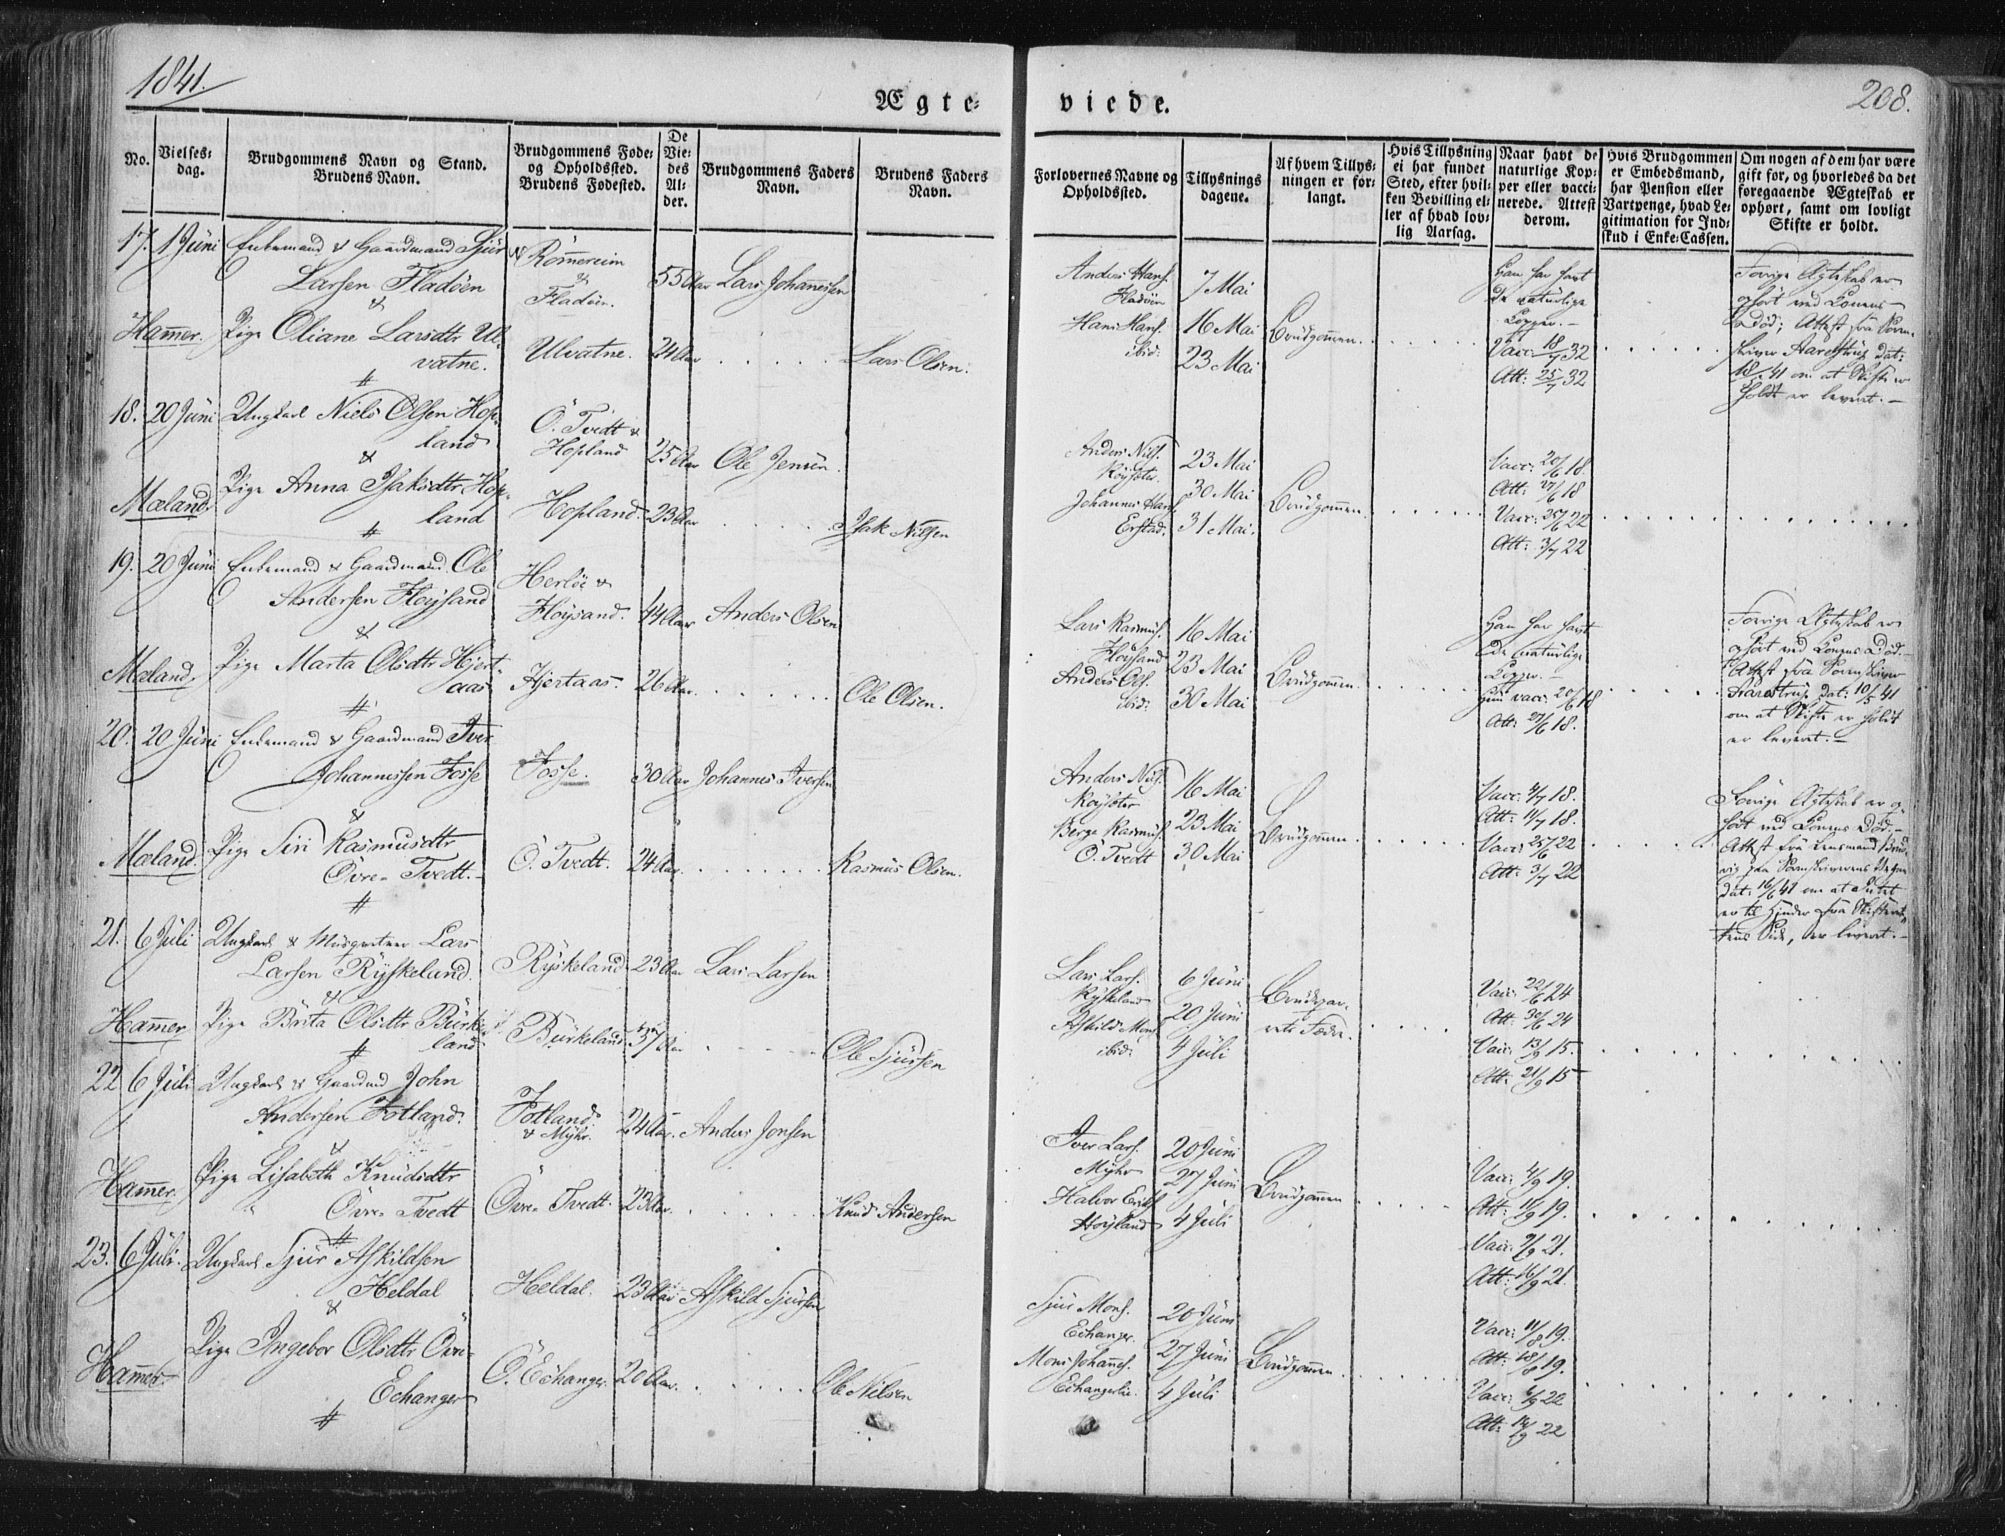 1841.
208.
Ægte-
viede.
No.
Vielses-
dag.
Brudgommens Navn og Stand.
Brudens Navn.
Brudgommens Føde-
og Opholdssted.
Brudens Fødested.
De
Vie-
des
Al-
der.
Brudgommens Faders
Navn.
Brudens Faders
Navn.
Forlovernes Navne og
Opholdssted.
Tillysnings
dagene.
Af hvem Tillys-
ningen er for-
langt.
Hvis Tillysning
ei har fundet
Sted, efter hvil-
ken Bevilling el-
ler af hvad lov-
lig Aarsag.
Naar havt de
naturlige Kop-
per eller vacci-
nerede. Attest
derom.
Hvis Brudgommen
er Embedsmand,
har Pension eller
Vartpenge, hvad Le-
gitimation for Ind-
skud i Enke-Cassen.
Om nogen af dem har være
gift før, og hvorledes da det
foregaaende Ægteskab er
ophørt, samt om lovligt
Skifte er holdt.
17. 1 Juni Enkemand & Gaardmand Sjur
Larsen Fladöen
&
Hammer. Pige Oliane Larsdtr Ul-
vatne.
#
Rommereim
&
Fladöen.
55 Aar Lars Johannesen
Ulvatne. 24 Aar
Lars Olsen.
Anders Hans.
Fladöen
Hans Hans.
ibid.
7 Mai
16 Mai
23 Mai
Brudgommen.
Han har havt
de naturlige
Kopper.
Vacc: 18/7 32
Att: 25/7 32
Forrige Ægteskab er
ophört ved Konens
Död; Attest fra Soren-
skriver Aarestrup dat:
om at Skifte er
holdt er leveret.
18. 20 Juni Ungkarl Niels Olsen Hop-
land
&
Mæland. Pige Anna Isaksdtr Hop-
land
#
Ö. Tvedt &
Hopland
25 Aar Ole Jensen
Hopland. 23 Aar
Isak Nilsen
Anders Nils.
Röyster.
Johannes Hans
Erstad.
23 Mai
30 Mai
31 Mai.
Brudgommen.
Vacc: 20/6 18.
Att: 27/6 18
Vacc: 25/6 22
Att: 3/7 22
19. 20 Juni Enkemand & Gaardmand Ole
Andersen Floysand
&
Mæland. Pige Marta Olsdtr Hjert-
aas
#
Herlöe &
Floysand.
44 Aar Anders Olsen
Hjertaas. 26 Aar
Ole Olsen.
Lars Rasmus.
Floysand
Anders Ols.
ibid.
16 Mai
23 Mai
30 Mai
Brudgommen.
Han har havt
de naturlige
Kopper.
Hun vacc: 20/6 18
Att: 27/6 18.
Forrige Ægteskab er
ophört ved Konens Död.
Attest fra Sorenskriver
Aarestrup dat: 10/5 41
om at Skifte er holdt
er leveret.
20. 20 Juni Enkemand & Gaardmand Iver
Johannessen Fosse
&
Mæland. Pige Siri Rasmusdtr
Övre Tvedt.
#
Fosse.
30 Aar Johannes Iversen
Ö. Tvedt. 24 Aar.
Rasmus Olsen.
Anders Nils.
Röyster
Berge Rasmus.
Ö. Tvedt
16 Mai
23 Mai
30 Mai
Brudgommen.
Vacc: 4/7 18.
Att: 11/7 18.
Vacc: 25/6 22
Att: 3/7 22
Forrige Ægteskab er op-
hört ved Konens Död.
Attest fra Lensmand
paa Sorenskriverens Vegne
dat: 16/5 41 om at Intet
er til Hinder fra Skifteret-
tens Side, er leveret.
21. 6 Juli Ungkarl & Musqueteer Lars
Larsen Ryskeland.
&
Hammer Pige Brita Olsdtr Bürke-
land.
#
Ryskeland 23 Aar Lars Larsen
Bürkeland. 37 Aar
Ole Sjursen
Lars Lars.
Ryskeland
Askild Mons
ibid.
6 Juni
20 Juni
4 Juli
Brudepar-
rets Fædre.
Vacc: 22/6 24
Att: 30/6 24
Vacc: 13/9 15.
Att: 21/9 15
22 6 Juli Ungkarl & Gaardmd John
Andersen Fotland.
&
Hammer. Pige Lisabeth Knudsdtr
Övre Tvedt
#
Fotland.
& Myhr.
24 Aar. Anders Jonsen
Övre Tvedt. 23 Aar.
Knud Andersen
Iver Lars.
Myhr
Halvor Eriks
Höyland
20 Juni
27 Juni
4 Juli
Brudgommen
Vacc: 4/9 19.
Att: 11/9 19.
Vacc: 9/9 21.
Att: 16/9 21.
23. 6 Juli. Ungkarl Sjur Askildsen
Heldal
&
Hammer Pige Ingebor Olsdtr Övre
Echanger
#
Heldal. 23 Aar Askild Sjursen
Ö. Echanger. 20 Aar.
Ole Nilsen
Sjur Mons.
Echanger.
Mons Johannes.
20 Juni
27 Juni
4 Juli
Brudgommen.
Vacc: 11/8 19.
Att: 18/8 19.
Vacc: 6/9 22
Att: 14/9 22